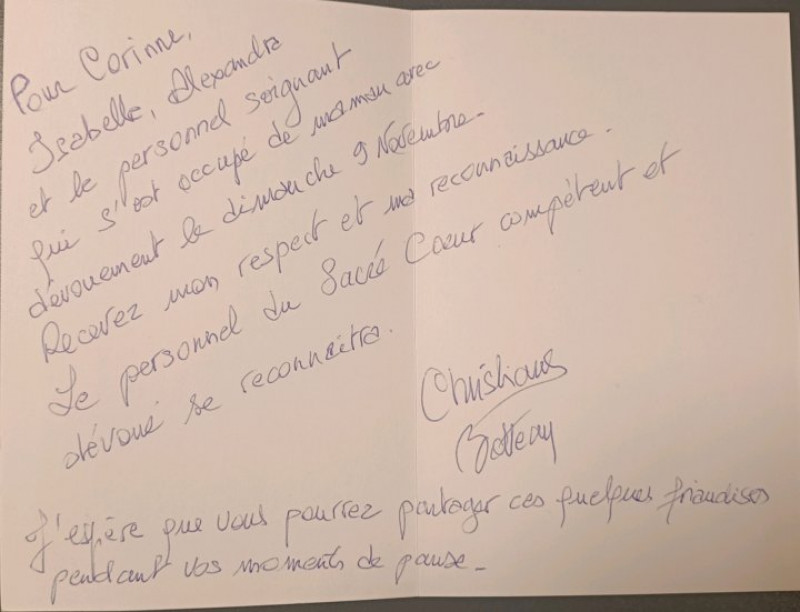 Pour Corinne,
Isabelle, Alexandra
et le personnel soignant
qui s'est occupé de maman avec
dévouement le dimanche 9 Novembre.
Recevez mon respect et ma reconnaissance.
Le personnel du Sacré Coeur compétent et
dévoué se reconnaitra.
Christiane
J'espère que vous pourrez partager ces quelques friandises
pendant vos moments de pause.